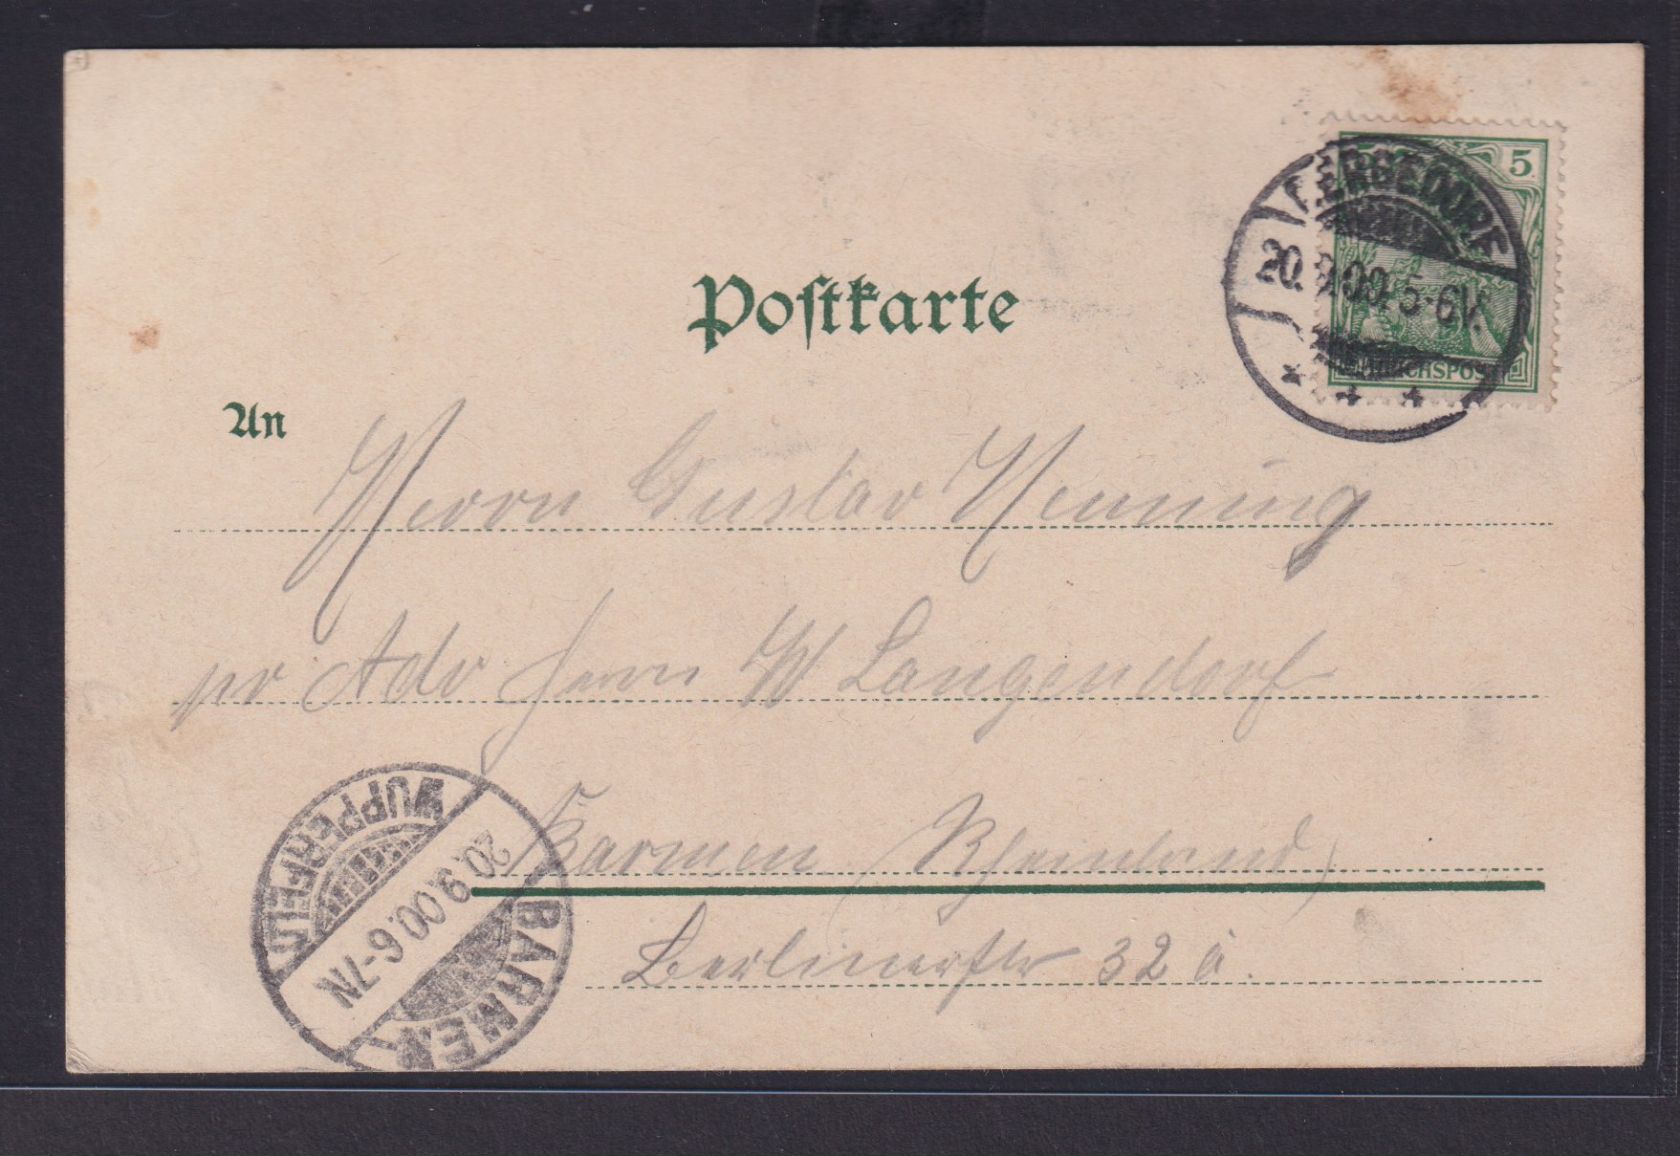 Postkarte
5
BERGEDORF
20.9.00. 5-6V.
REICHSPOST
An
Herrn Gustav Henning
pr Adr Herrn W Langendorf
Barmen (Rheinland)
Berlinerstr 32 a.
BARMEN
20.9.00.6-7N
WUPPERFELD